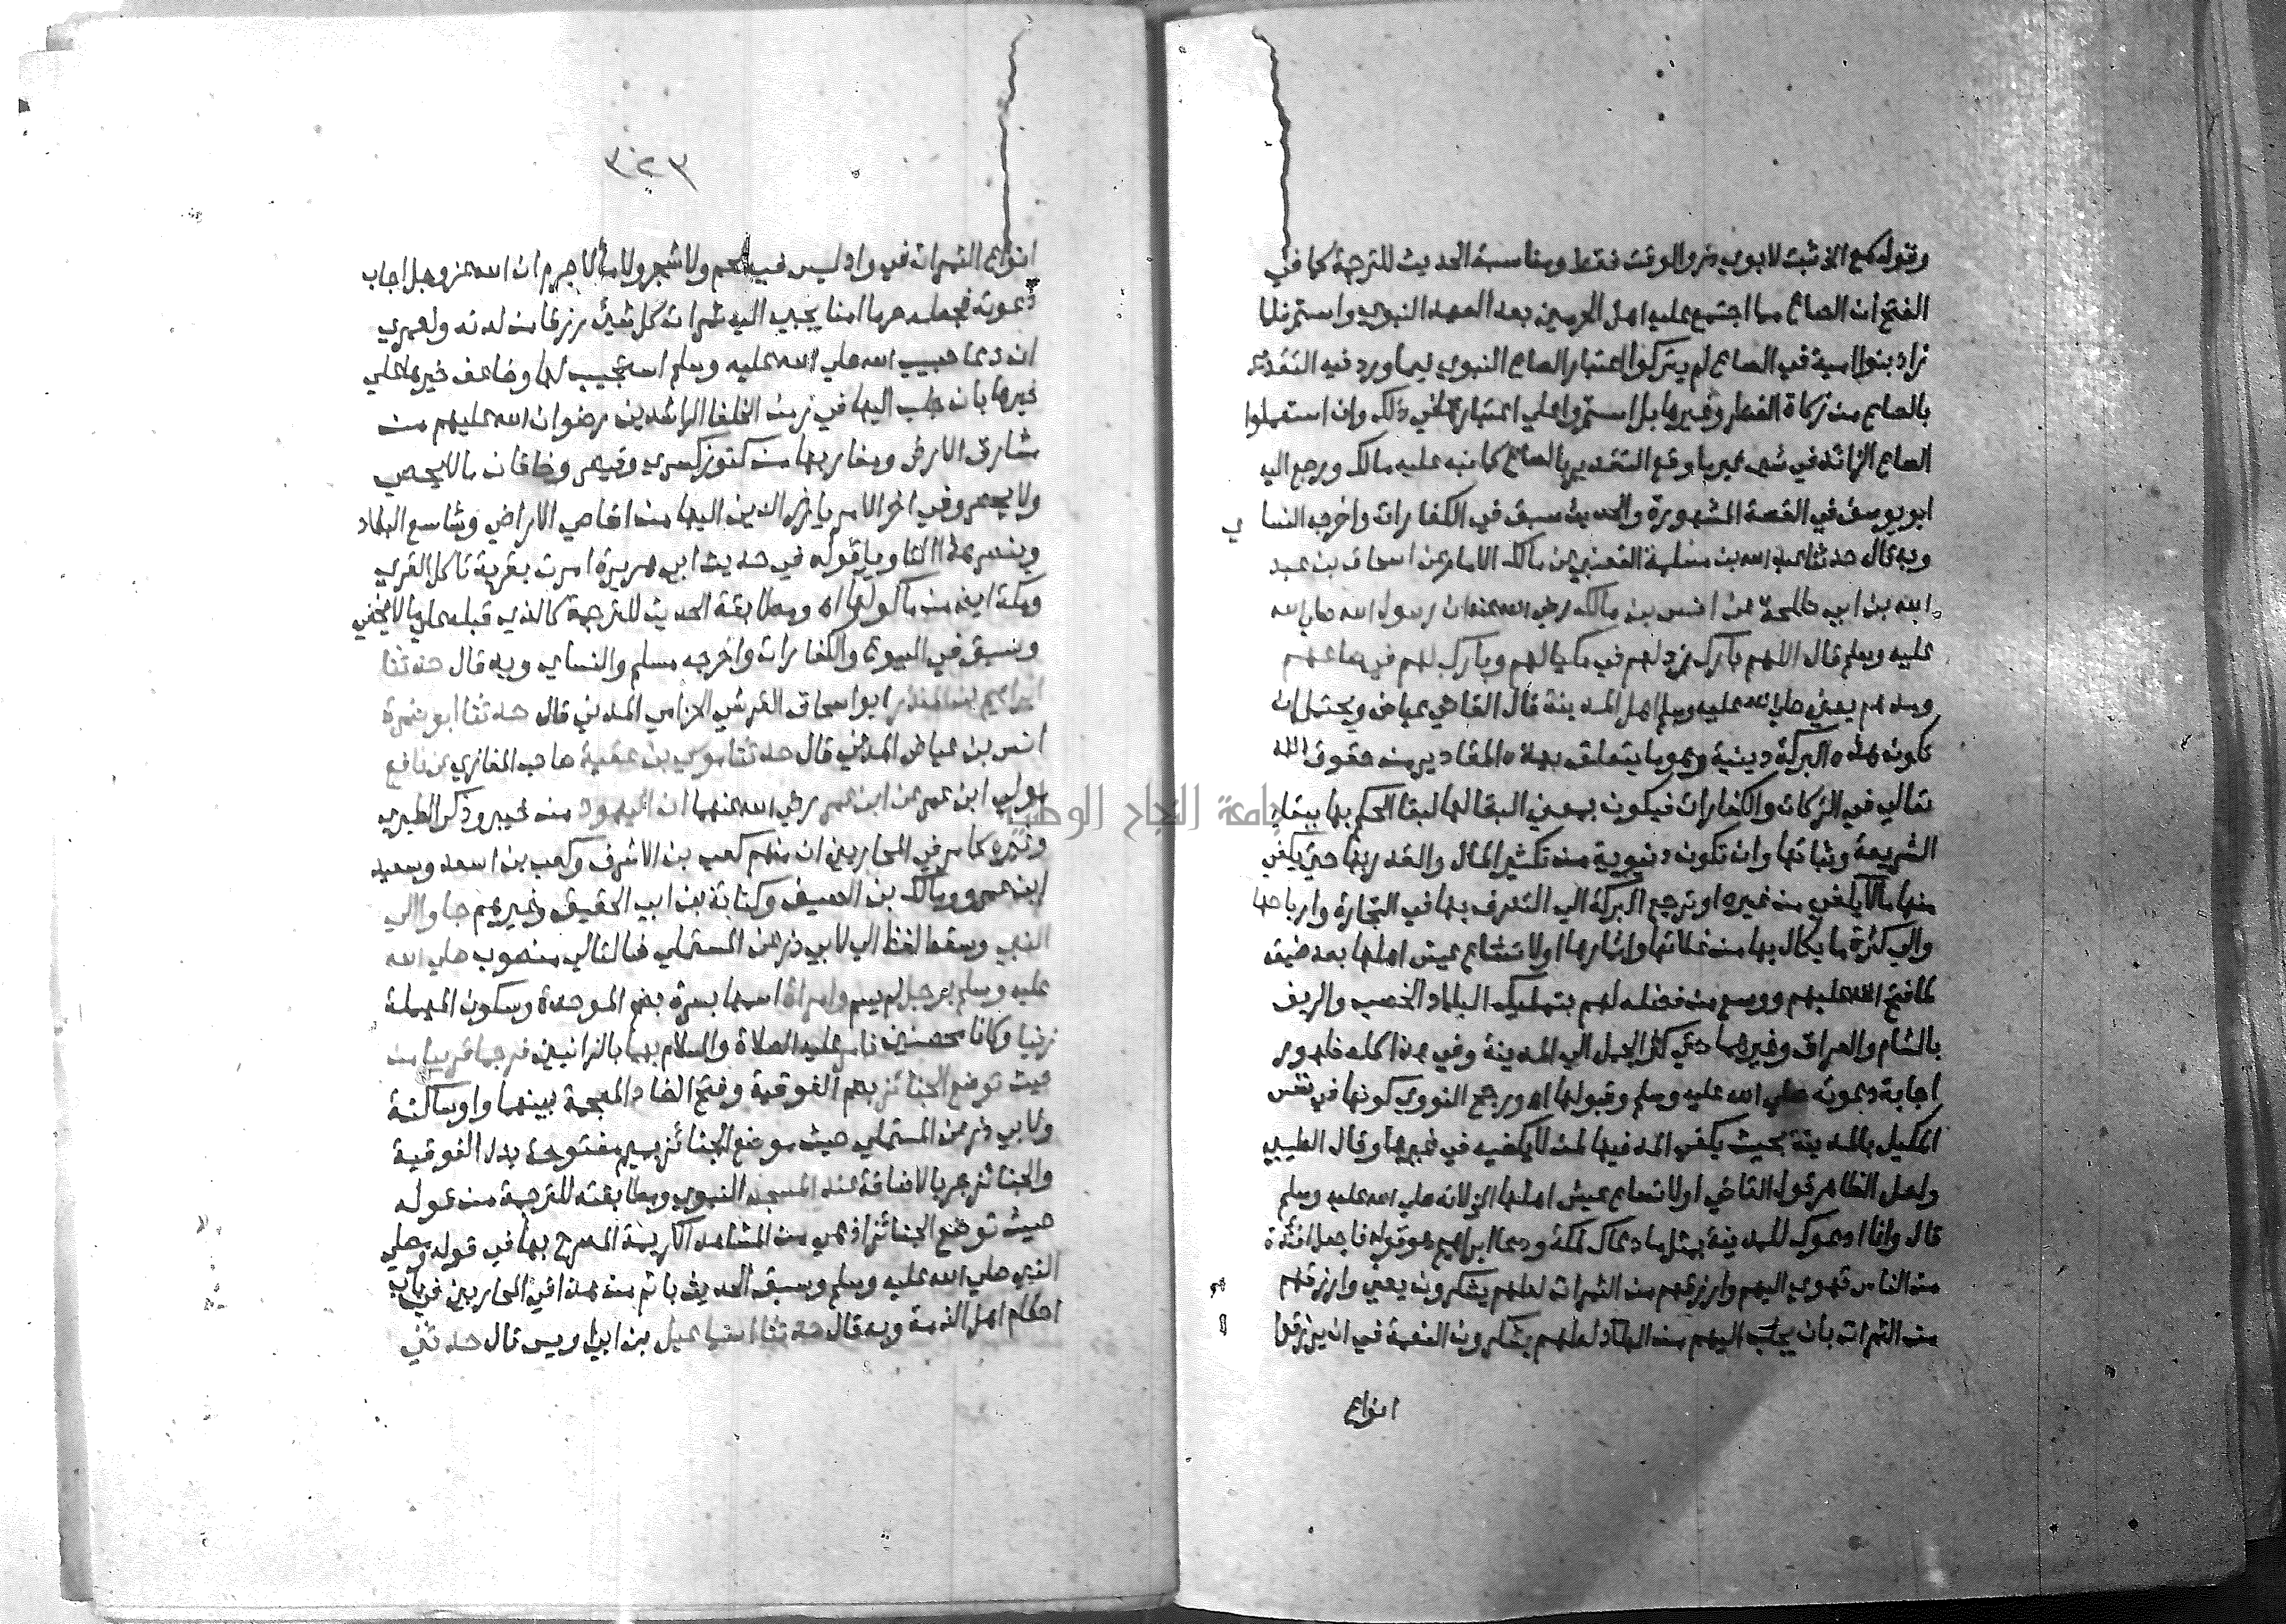 وقوله كم الخ ثبت لابوي ذر والوقت فقط ومناسبة الحديث للترجمة كما في
الفتح ان الصاع مما اجتمع عليه اهل الحرمين بعد العهد النبوي واستمر فلما
زاد بنوا امية في الصاع لم يتركوا اعتبار الصاع النبوي فيما ورد فيه التقدير
بالصاع من زكاة الفطر وغيرها بل استمروا على اعتباره في ذلك وان استعملوا
الصاع الزائد في شي غير ما وقع التقدير بالصاع كما نبه عليه مالك ورجع اليه
ابو يوسف في القصة المشهورة والحديث سبق في الكفارات واخرجه النساي
وبه قال حدثنا عبد الله بن مسلمة القعنبي عن مالك الامام عن اسحاق بن عبد
الله بن ابي طلحة عن انس بن مالك رضي الله عنه ان رسول الله صلي الله
عليه وسلم قال اللهم بارك لهم في مكيالهم وبارك لهم في صاعهم
ومدهم يعني صلي الله عليه وسلم اهل المدينة قال القاضي عياض ويحتمل ان
تكون هذه البركة دينية وهو ما يتعلق بهذه المقادير من حقوق الله
تعالي في الزكات والكفارات فيكون بمعني البقا لها لبقا الحكم بها ببقا
الشريعة وثباتها وان تكون دنيوية من تكثير المال والقدر بها حتي يكفي
منها ما لا يكفي من غيره او ترجع البركة الي التصرف بها في التجارة وارباحها
والي كثرة ما يكال بها من غلاتها واثمارها او لاتساع عيش اهلها بعد ضيق
لما فتح الله عليهم ووسع من فضله لهم بتمليك البلاد الخصب والريف
بالشام والعراق وغيرهما حتي كثر الحمل الي المدينة وفي هذا كله ظهور
اجابة دعوته صلي الله عليه وسلم وقبولها اه ورجح النووي كونها في نفس
المكيل بالمدينة بحيث يكفي المد فيها لمن لا يكفيه في غيرها وقال الطيبي
ولعل الظاهر قول القاضي او لاتساع عيش اهلها الخ لانه صلي الله عليه وسلم
قال وانا ادعوك للمدينة بمثل ما دعاك لمكة ودعا ابراهيم هو قوله فاجعل افئدة
من الناس تهوي اليهم وارزقهم من الثمرات لعلهم يشكرون يعني وارزقهم
من الثمرات بان يجلب اليهم من البلاد لعلهم يشكرون النعمة في ان يرزقوا
انواع
٣٢٣
انواع الثمرات في واد ليس فيه لحم ولا شجر ولا ما لا جرم ان الله عز وجل اجاب
دعوته فجعله حرما امنا يجبي اليه ثمرات كل شيئ رزقا من لدنه ولعمري
ان دعا حبيب الله صلي الله عليه وسلم استجيب لها وضاعف خيرها علي
غيرها بان جلب اليها في زمن الخلفا الراشدين رضوان الله عليهم من
مشارق الارض ومغاربها من كنوز كسري وقيصر وخاقان ما لا يحصي
ولا يحصر وفي اخر الامر يارز الدين اليها من اقاصي الاراضي وشاسع البلاد
وينصر هذا التاويل قوله في حديث ابي هريرة امرت بقرية تاكل القري
ومكة ايضا من ماكولها اه ومطابقة الحديث للترجمة كالذي قبله علي ما لا يخفي
وسبق في البيوع والكفارات واخرجه مسلم والنساي وبه قال حدثنا
ابراهيم بن المنذر ابو اسحاق القرشي الحزامي المدني قال حدثنا ابو ضمرة
انس بن عياض المدني قال حدثنا موسي بن عقبة صاحب المغازي عن نافع
مولي ابن عمر عن ابن عمر رضي الله عنهما ان اليهود من خيبر وذكر الطبري
وغيره كما مر في المحاربين ان منهم كعب بن الاشرف وكعب بن اسعد وسعيد
ابن عمرو ومالك بن الصيف وكنانة بن ابي الحقيق وغيرهم جاوا الي
النبي وسقط لفظ الي لابي ذر عن المستملي فالتالي منصوب صلي الله
عليه وسلم برجل لم يسم وامراة اسمها بسرة بضم الموحدة وسكون المهملة
زنيا وكانا محصنين فامر عليه الصلاة والسلام بهما بالزانيين فرجما قريبا من
حيث توضع الجنائز بضم الفوقية وفتح الضاد المعجمة بينهما واو ساكنة
ولابي ذر عن المستملي حيث موضع الجنائز بميم مفتوحة بدل الفوقية
والجنائز جر بالاضافة عند المسجد النبوي ومطابقته للترجمة من قوله
حيث توضع الجنائز اذ هي من المشاهد الكريمة المصرح بها في قوله ومصلي
النبي صلي الله عليه وسلم وسبق الحديث باتم من هذا في المحاربين في باب
احكام اهل الذمة وبه قال حدثنا اسماعيل بن ابي اويس قال حدثني
جامعة النجاح الوطنية